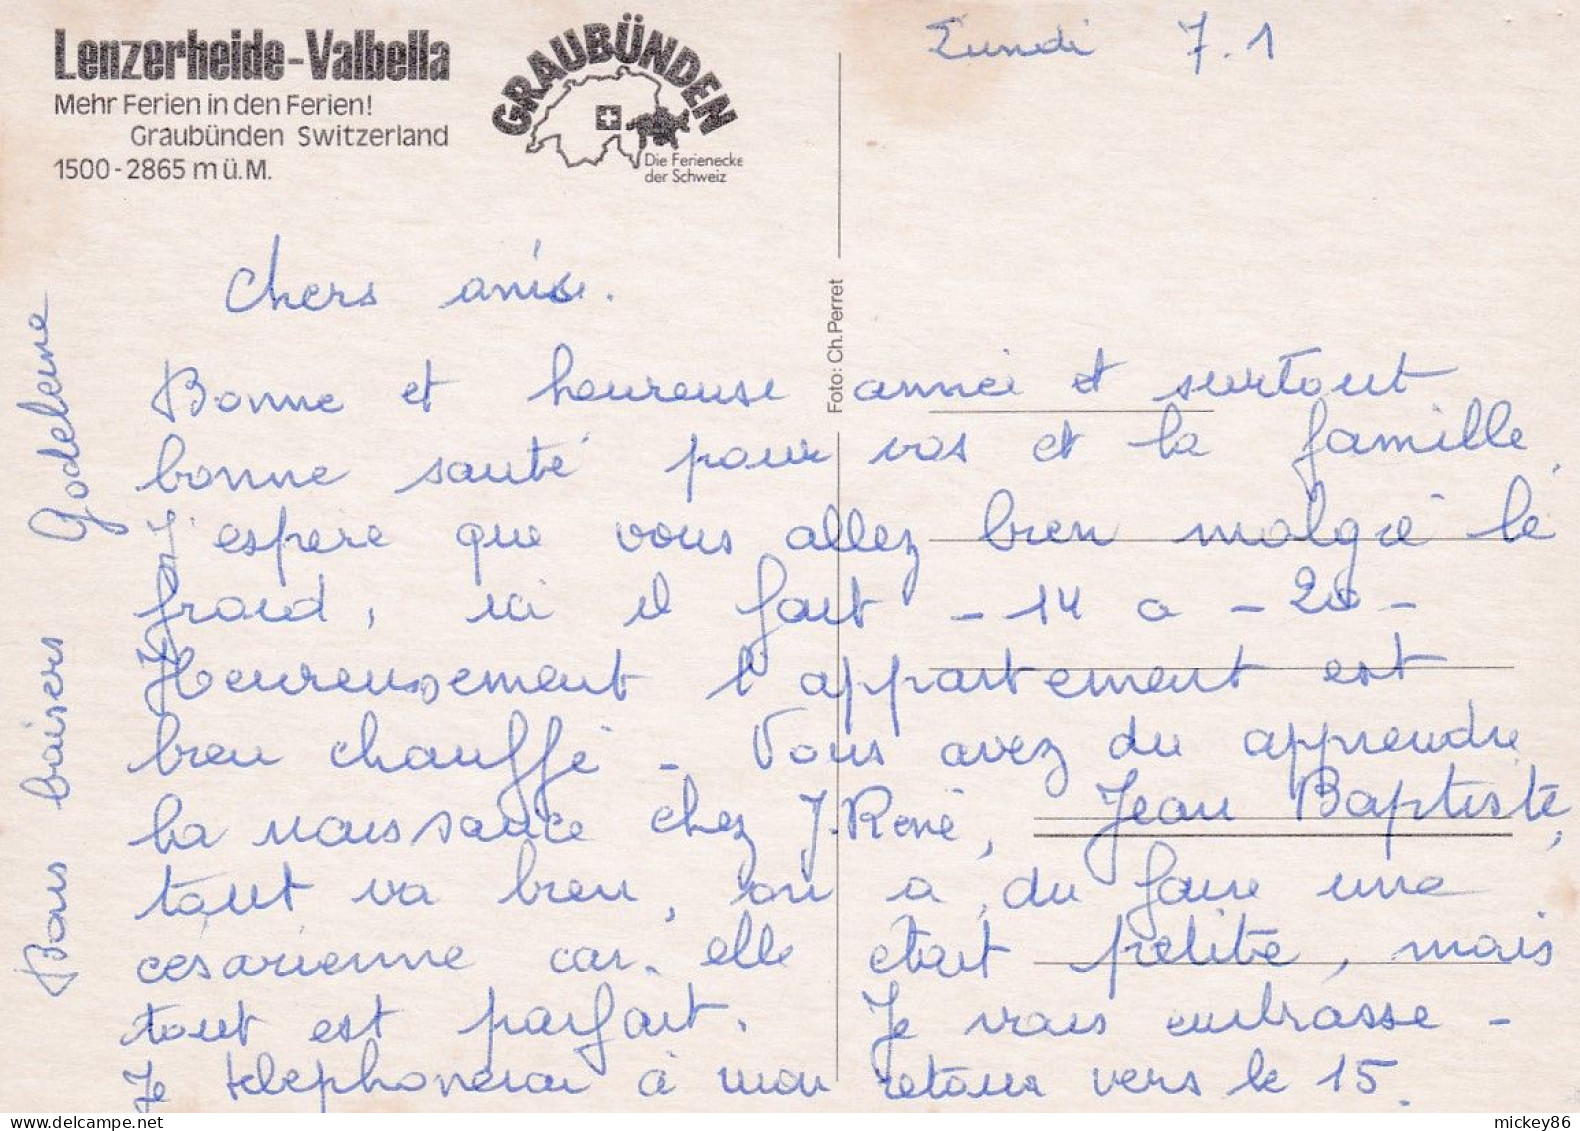 Lenzerheide-Valbella
Mehr Ferien in den Ferien!
Graubünden Switzerland
1500-2865 m ü. M.
GRAUBÜNDEN
Die Ferienecke
der Schweiz
Foto: Ch. Perret
Lundi 7.1
Chers amis.
Bonne et heureuse année et surtout
bonne santé pour vos et la famille.
J'espère que vous allez bien malgré le
froid, ici il fait - 14 a - 20 -
Heureusement l'appartement est
bien chauffé - Vous avez du apprendre
la naissance chez J. René, Jean Baptiste,
tout va bien, on a du faire une
césarienne car elle était petite, mais
tout est parfait. Je vous embrasse -
Je telephonerai à mon retour vers le 15.
Bons baisers Godeleine
mickey86